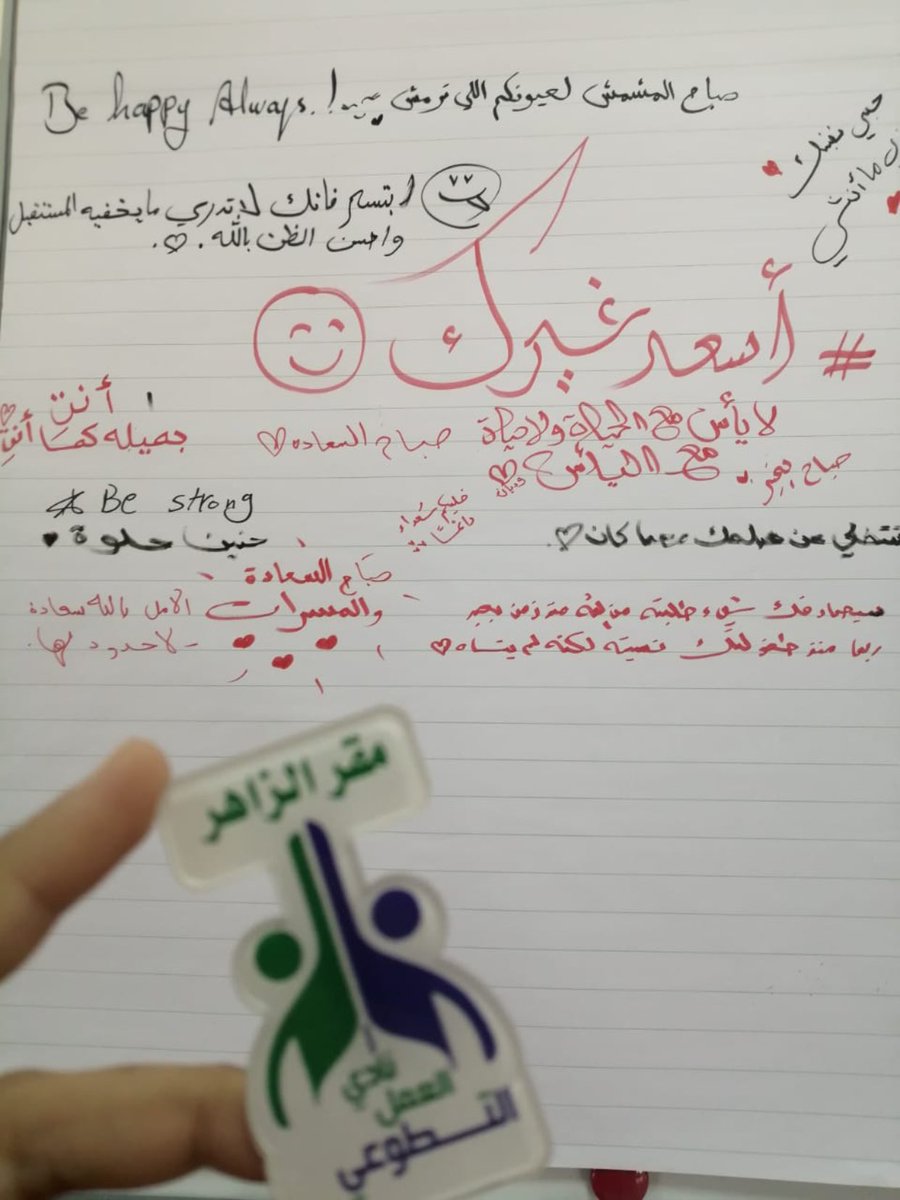 Be happy Always.!
صباح المشمش لعيونكم اللي ترمش
حبي نفسك
ما أنتي
ابتسم فانك لا تدري ما يخفيه المستقبل
واحسن الظن بالله
# أسعد غيرك
أنت
جميله كما أنتِ
لا يأس مع الحياة ولا حياة
مع اليأس
صباح السعاده
صباح
Be strong
حنين حلوة
عن مهما كان
صباح السعادة
والمسرات
الامل بالله سعادة
لا حدود لها
شيء طلبته منذ زمن
ربما منذ نسيته لكنه لم ينساه
مقر الزاهر
نادي
العمل
التطوعي